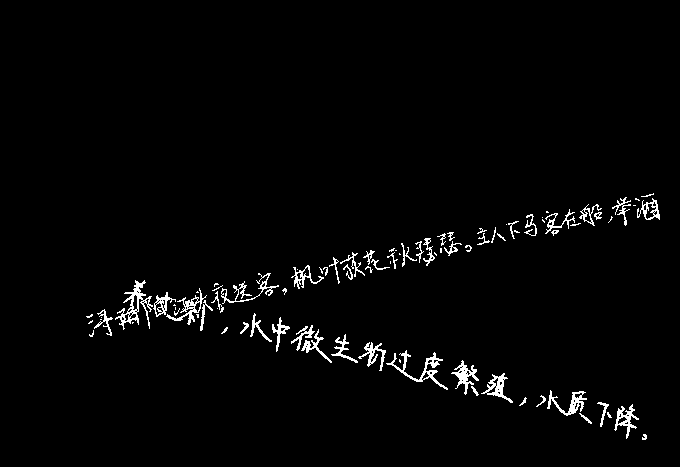 浔阳江头夜送客，枫叶荻花秋瑟瑟。主人下马客在船，举酒
，水中微生物过度繁殖，水质下降。